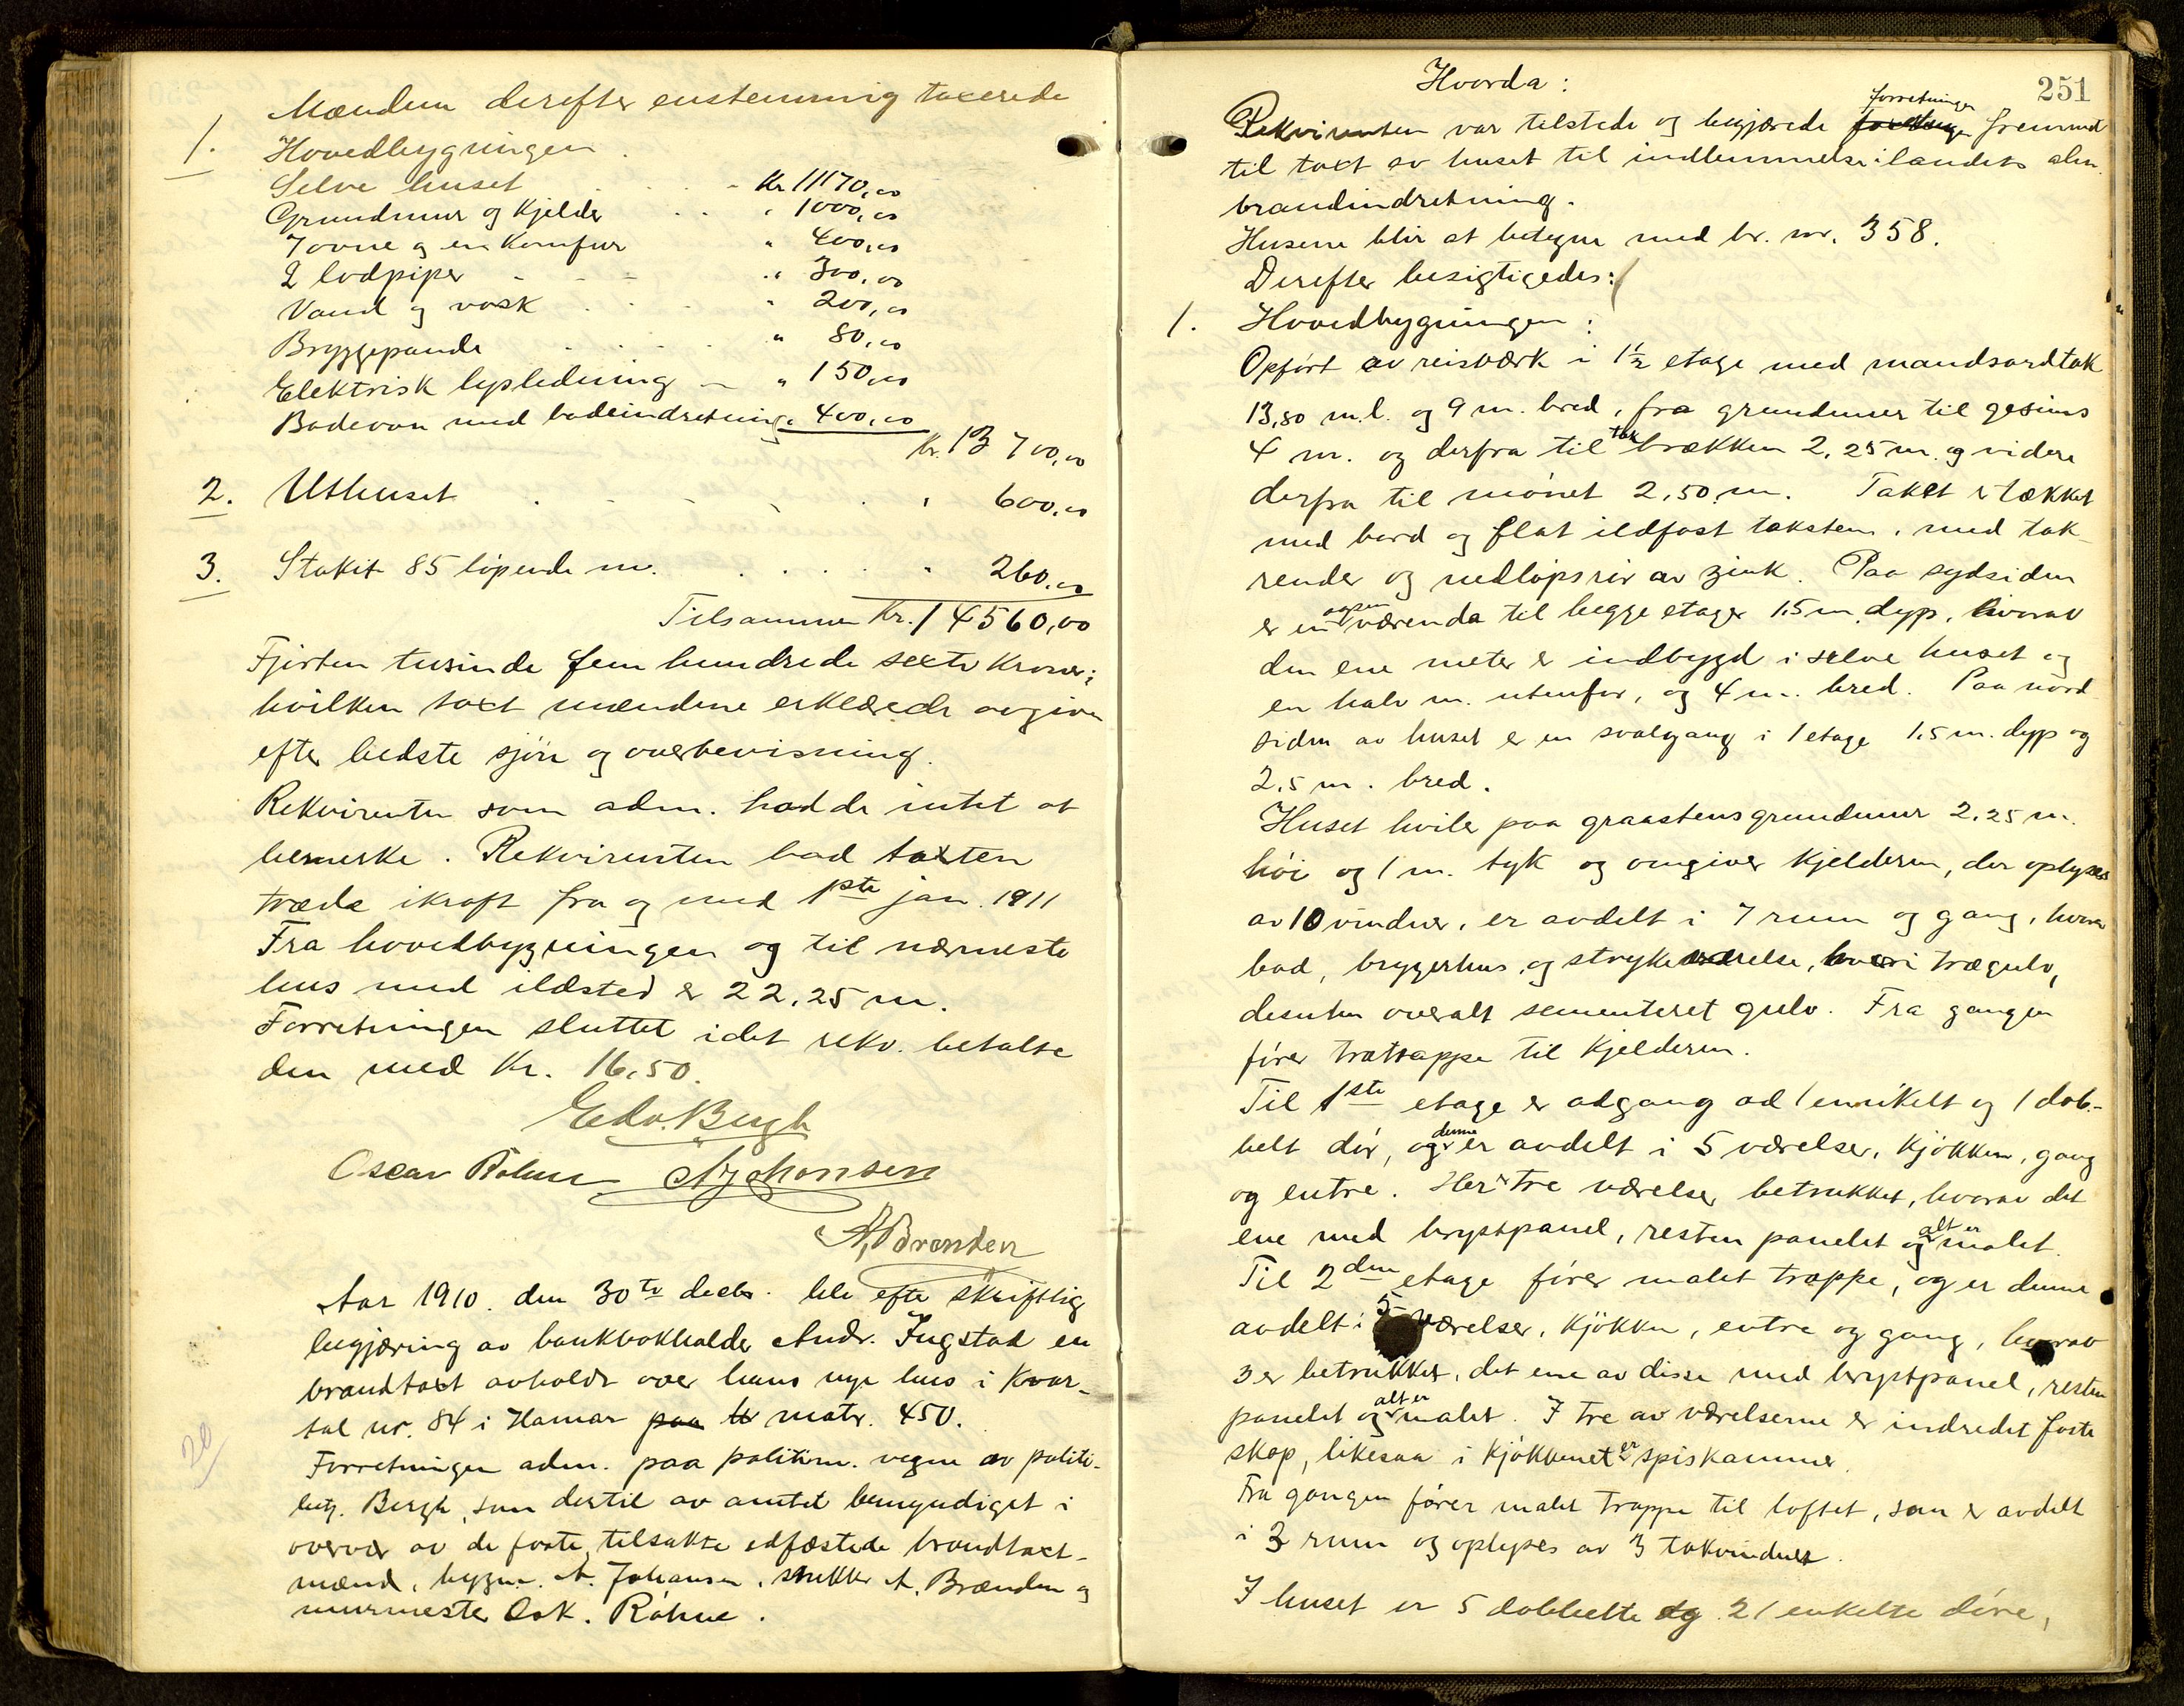 Mændene derefter enstemmig taxerede
1. Hovedbygningen.
Selve huset . . . - Kr. 11170,00
Grundmur og Kjelder . . " 1000,00
7 ovne og en Komfur " 400,00
2 lodpiper - - - " 300,00
Vand og vask . . . " 200,00
Bryggepande . . . . " 80,00
Elektrisk lysledning - " 150,00
Badeovn med badeindretning " 400,00
Kr. 13 700,00
2. Uthuset . - - . . " 600,00
3. Stakit 85 løpende m. . . . . " 260,00
Tilsammen Kr. 14560,00
Fjorten tusinde fem hundrede sexti Kroner;
hvilken taxt mændene erklærede avgiven
efter bedste sjøn og overbevisning.
Rekvirenten som adm. hadde intet at
bemerke. Rekvirenten bad taxten
træde ikraft fra og med 1ste jan. 1911
Fra hovedbygningen og til nærmeste
hus med ildsted er 22,25 m.
Forretningen sluttet idet rekv. betalte
den med Kr. 16,50.
Edv. Bergh
Oscar Røhne A Johansen
A. Brenden
Aar 1910 den 30te decbr. blev efter skriftlig
begjæring av bankbokholder Andr. Fugstad en
brandtaxt avholdt over hans nye hus i Kvar-
tal nr. 84 i Hamar paa matr. 450.
20
Forretningen adm. paa politim. vegne av politi-
betj. Bergh, som dertil av amtet bemyndiget i
overvær av de faste, tilsakte edfæstede brandtaxt-
mænd, bygm. A. Johansen, snekker A. Brænden og
murmester Osk. Røhne.
251
Hvorda:
Rekvirenten var tilstede og begjærede forretningen fremmet
til taxt av huset til indlemmelse i landets alm.
brandindretning.
Husene blir at betegne med br. nr. 358.
Derefter besigtigedes:
1. Hovedbygningen:
Opført av reisverk i 1½ etage med mandsardtak
13,80 m. l. og 9 m. bred, fra grundmur til gesims
4 m. og derfra til takbrækken 2,25 m. og videre
derfra til mønet 2,50 m. Taket er tækket
med bord og flat ildfast taksten, med tak-
render og nedløpsrør av zink. Paa sydsiden
er en aapen værenda til begge etager 1,5 m. dyp, hvorav
den ene meter er indbygd i selve huset og
en halv m. utenfor, og 4 m. bred. Paa nord
siden av huset er en svalgang i 1 etage 1,5 m. dyp og
2,5 m. bred.
Huset hviler paa graastensgrundmur 2,25 m.
høi og 1 m. tyk og omgiver Kjelderen, der oplyses
av 10 vinduer, er avdelt i 7 rum og gang, hvorav
bad, bryggerhus og strykeværelse, hvori trægulv,
desuten overalt sementeret gulv. Fra gangen
fører trætrappe til Kjelderen.
Til 1ste etage er adgang ad 1 enkelt og 1 dob-
belt dør, og denne er avdelt i 5 værelser, Kjøkken, gang
og entre. Her er tre værelser betrukket, hvorav det
ene med brystpanel, resten panelet og alt er malet.
Til 2den etage fører malet trappe, og er denne
avdelt i 5 værelser, Kjøkken, entre og gang, hvorav
3 er betrukket, det ene av disse med brystpanel, resten
panelet og alt er malet. I tre av værelserne er indredet faste
skap, likesaa i Kjøkkenet er spiskammer.
Fra gangen fører malet trappe til loftet, som er avdelt
i 3 rum og oplyses av 3 takvinduer.
I huset er 5 dobbelte og 21 enkelte døre,